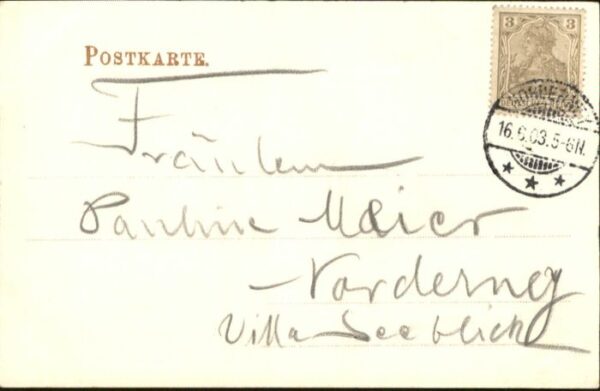 POSTKARTE.
3 3
NORDERNEY
16.6.03.5-6N.
Fräulein
Pauline Meier
Norderney
Villa Seeblick